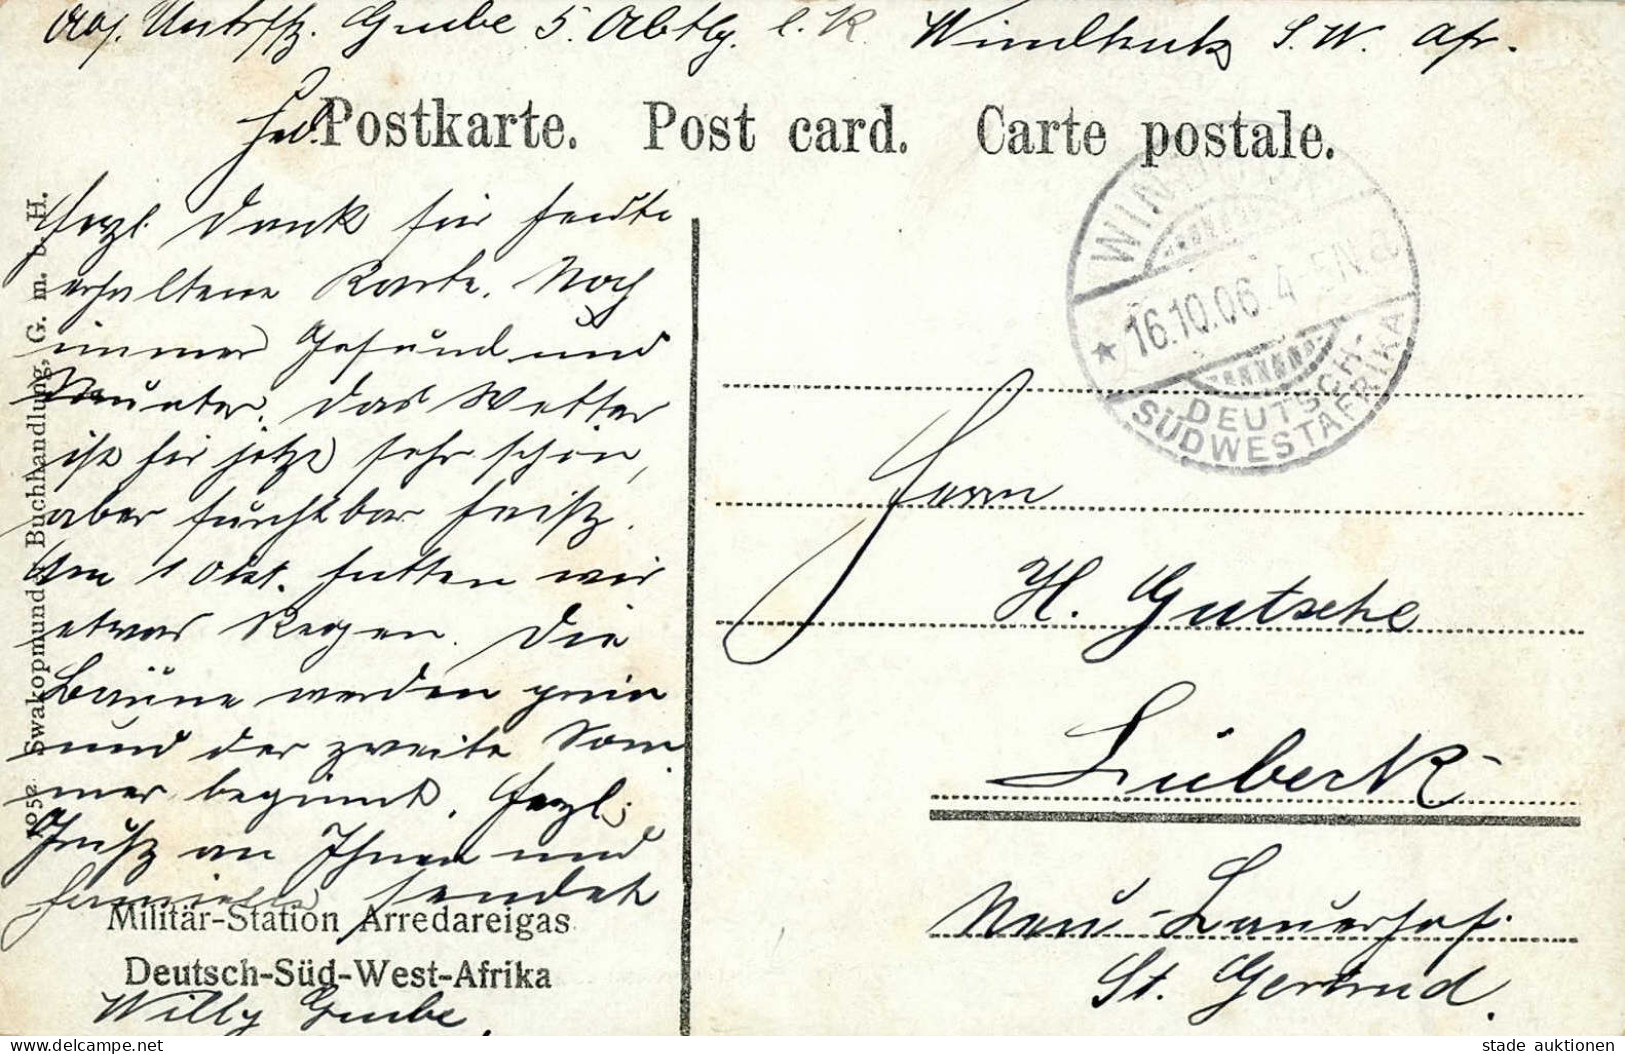 Abs. Untrffz. Grube 5. Abtlg. l. R. Windhuk S. W. Afr.
Postkarte. Post card. Carte postale.
Herzl. Dank für heute
erhaltene Karte. Noch
immer Gesund und
Munter. Das Wetter
ist hir jetzt sehr schön,
aber furchtbar heiß.
Am 1 Okt. hatten wir
etwas Regen. Die
Bäume werden grün
und der zweite Som
mer beginnt. Herzl.
Gruß an Ihnen und
Familie sendet
Willy Grube.
Militär-Station Arredareigas
Deutsch-Süd-West-Afrika
1052 Swakopmunder Buchhandlung, G. m. b. H.
WINDHUK
* 16.10.06. 4-5N a
DEUTSCH-
SÜDWESTAFRIKA
Herrn
H. Gutsche
Lübeck
Neu-Lauerhof.
St. Gertrud.
stade auktionen
www.delcampe.net